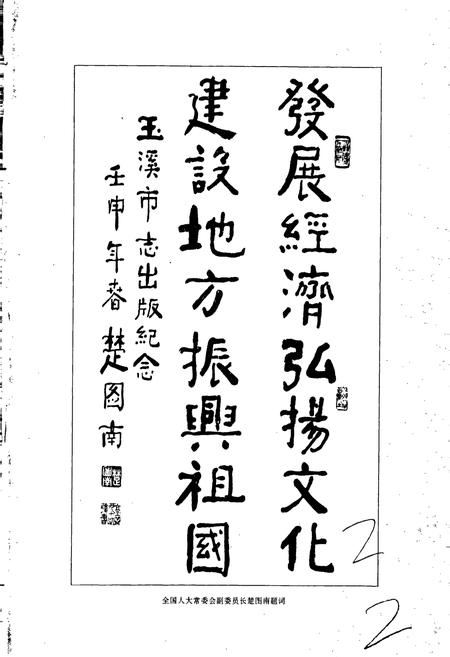 發展經濟弘揚文化
建設地方振興祖國
玉溪市志出版紀念
壬申年春楚图南
全国人大常委会副委员长楚图南题词
2
2